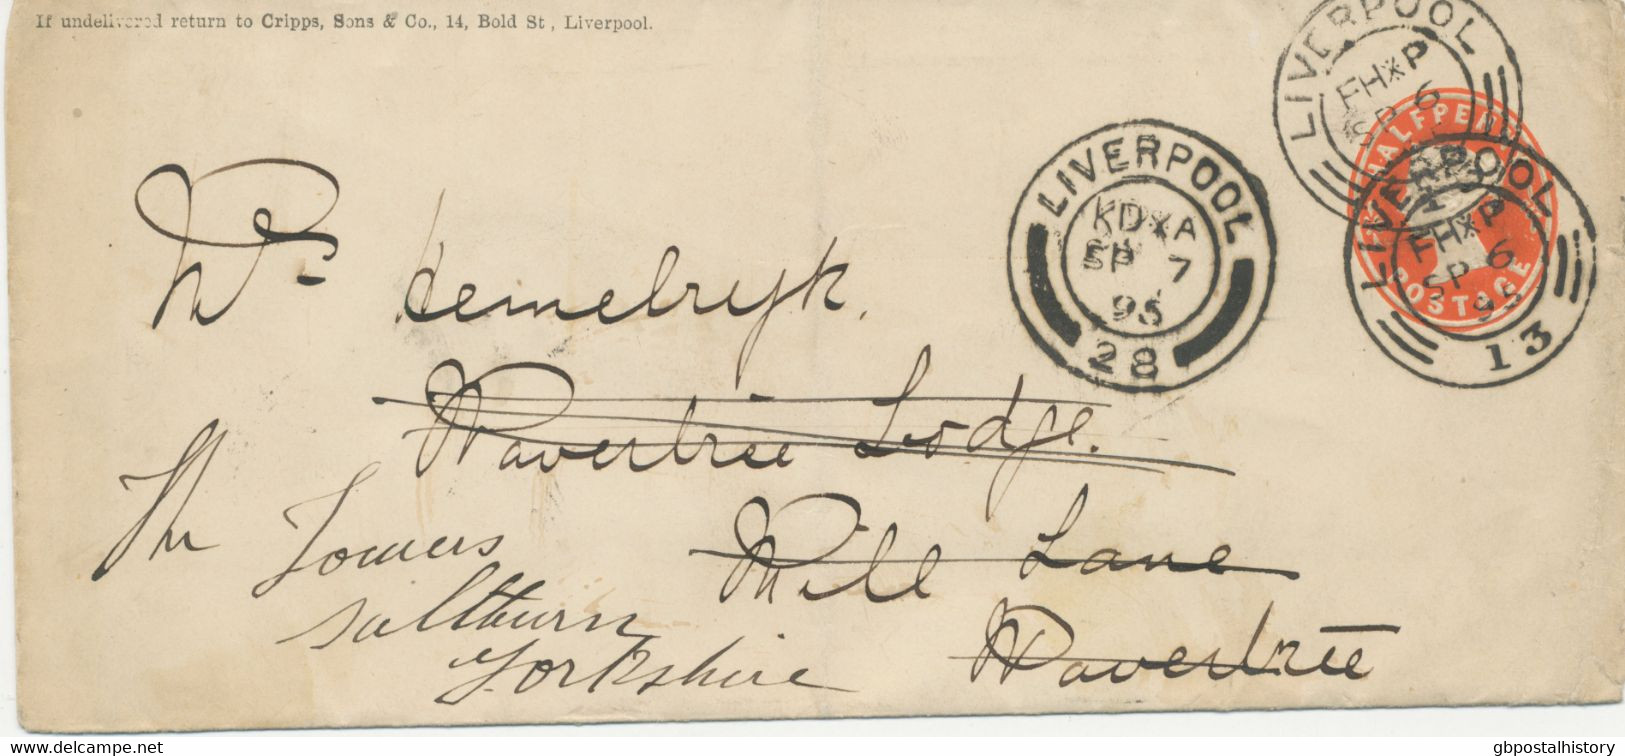 If undelivered return to Cripps, Sons & Co., 14, Bold St, Liverpool.
LIVERPOOL
FH*P
SP 6
HALFPENNY
POSTAGE
LIVERPOOL
FH*P
SP 6
95
13
LIVERPOOL
KD*A
SP 7
95
28
Mrs Hemelryk.
Wavertree Lodge.
Mill Lane
Wavertree
The Towers
Saltburn
Yorkshire
www.delcampe.net
gbpostalhistory